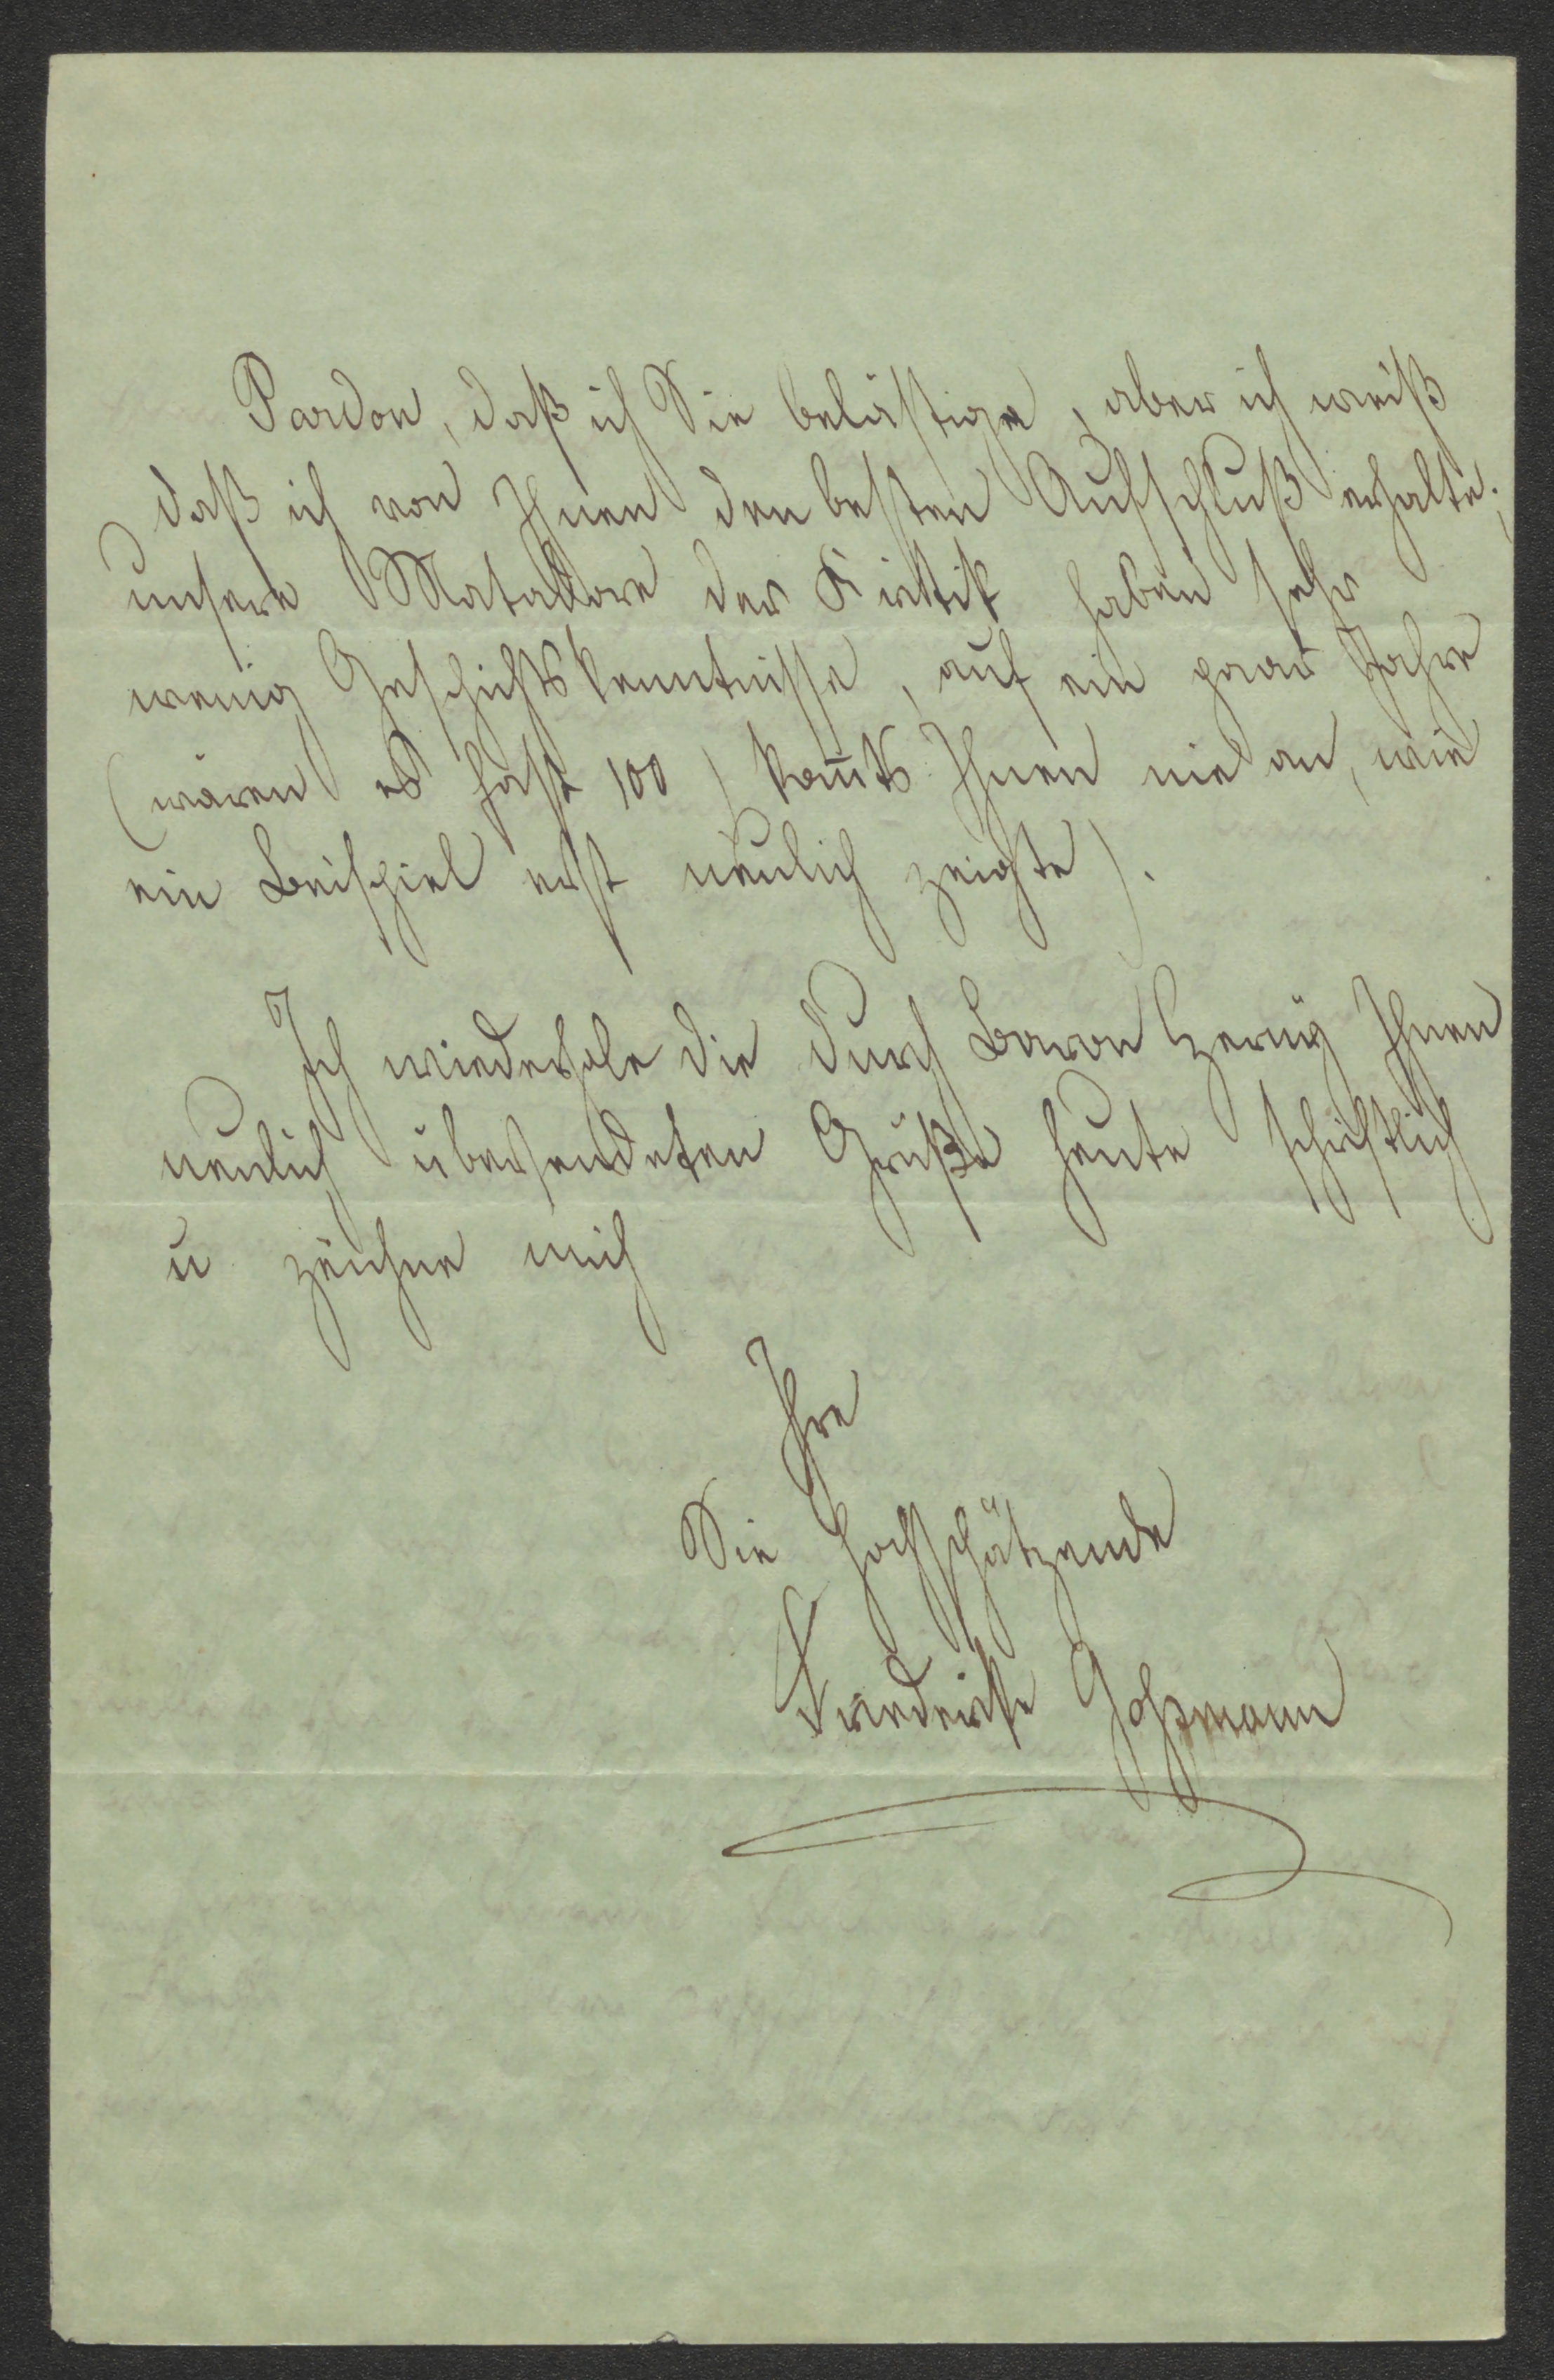 Pardon, daß ich Sie belästige, aber ich weiß
daß ich von Ihnen den besten Aufschluß erhalte;
unsere Matadore der Kritik haben sehr
wenig Geschichtskenntnisse, auf ein paar Jahre
(wären es fast 100) kom̄ts Ihnen nie an, wie
ein Beispiel erst neulich zeigte).
Ich wiederhole die durch Baron Ihnen
neulich übersendeten Grüße heute schriftlich
u zeichne mich
Ihre
Sie hochschätzende
Friederike Goßmann